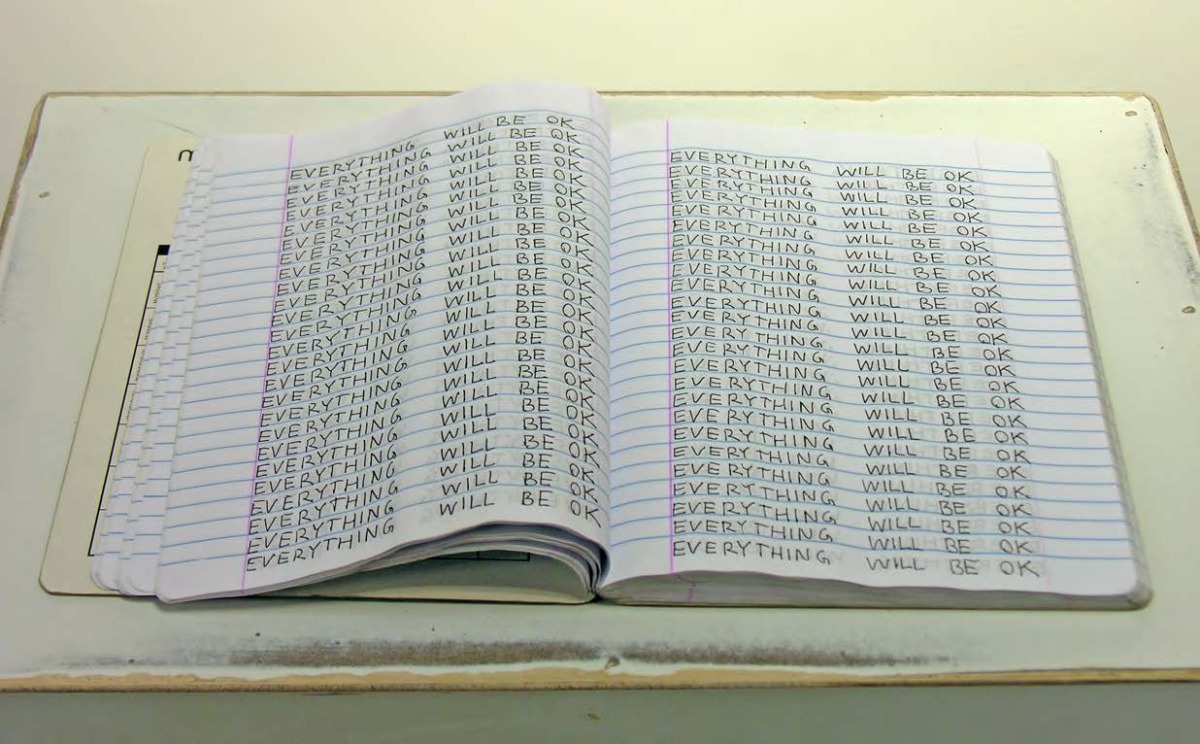 EVERYTHING WILL BE OK
EVERYTHING WILL BE OK
EVERYTHING WILL BE OK
EVERYTHING WILL BE OK
EVERYTHING WILL BE OK
EVERYTHING WILL BE OK
EVERYTHING WILL BE OK
EVERYTHING WILL BE OK
EVERYTHING WILL BE OK
EVERYTHING WILL BE OK
EVERYTHING WILL BE OK
EVERYTHING WILL BE OK
EVERYTHING WILL BE OK
EVERYTHING WILL BE OK
EVERYTHING WILL BE OK
EVERYTHING WILL BE OK
EVERYTHING WILL BE OK
EVERYTHING WILL BE OK
EVERYTHING WILL BE OK
EVERYTHING WILL BE OK
EVERYTHING WILL BE OK
EVERYTHING WILL BE OK
EVERYTHING WILL BE OK
EVERYTHING WILL BE OK
EVERYTHING WILL BE OK
EVERYTHING WILL BE OK
EVERYTHING WILL BE OK
EVERYTHING WILL BE OK
EVERYTHING WILL BE OK
EVERYTHING WILL BE OK
EVERYTHING WILL BE OK
EVERYTHING WILL BE OK
EVERYTHING WILL BE OK
EVERYTHING WILL BE OK
EVERYTHING WILL BE OK
EVERYTHING WILL BE OK
EVERYTHING WILL BE OK
EVERYTHING WILL BE OK
EVERYTHING WILL BE OK
EVERYTHING WILL BE OK
EVERYTHING WILL BE OK
EVERYTHING WILL BE OK
EVERYTHING WILL BE OK
EVERYTHING WILL BE OK
EVERYTHING WILL BE OK
EVERYTHING WILL BE OK
EVERYTHING WILL BE OK
EVERYTHING WILL BE OK
EVERYTHING WILL BE OK
EVERYTHING WILL BE OK